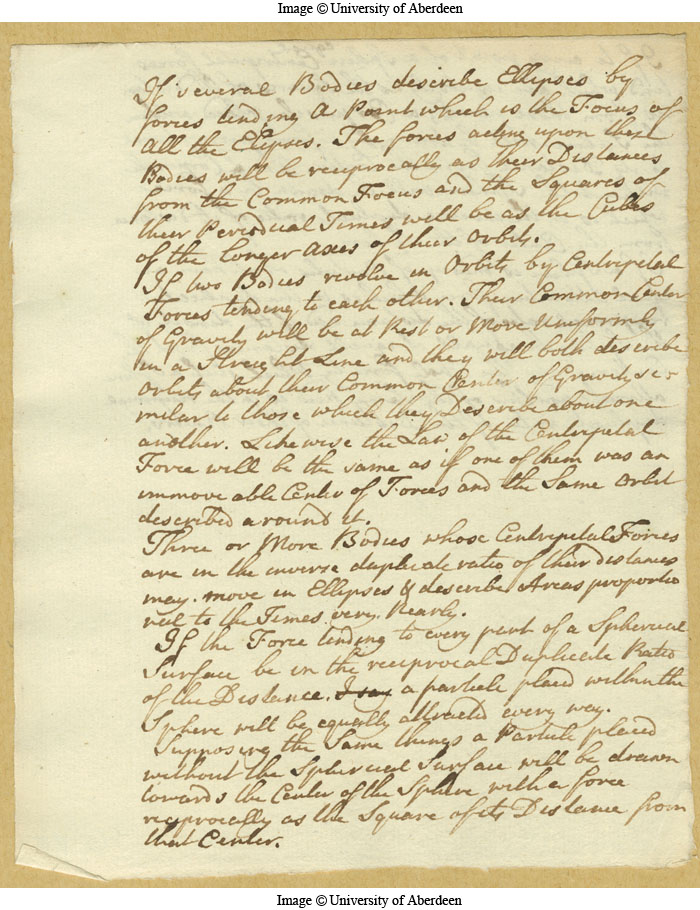 Image © University of Aberdeen
If several Bodies describe Ellipses by
forces tending A Point which is the Focus of
all the Elipses. The forces acting upon these
Bodies will be reciprocally as their Distances
from the Common Focus and the Squares of
their Periodical Times will be as the Cubes
of the longer axes of their Orbits.
If two Bodies revolve in Orbits by Centripetal
Forces tending to each other. Their Common Center
of Gravity will be at Rest or Move Uniformly
in a Streight Line and they will both describe
Orbits about their Common Center of Gravity se-
milar to those which they Describe about one
another. Likewise the Law of the Centripetal
Force will be the same as if one of them was an
immoveable Center of Forces and the Same Orbit
described around it.
Three or More Bodies whose Centripetal Forces
are in the inverse duplicate ratio of their distances
may move in Ellipses & describe Areas proportio
nal to the Times very Nearly.
If the Force tending to every part of a Spherical
Surface be in the reciprocal Duplicate Ratio
of the Distance. I say a particle placed within the
Sphere will be equally attracted every way.
Supposing the Same things a Particle placed
without the Spherical Surface will be drawn
towards the Center of the Sphere with a force
reciprocally as the Square of its Distance from
that Center.
Image © University of Aberdeen